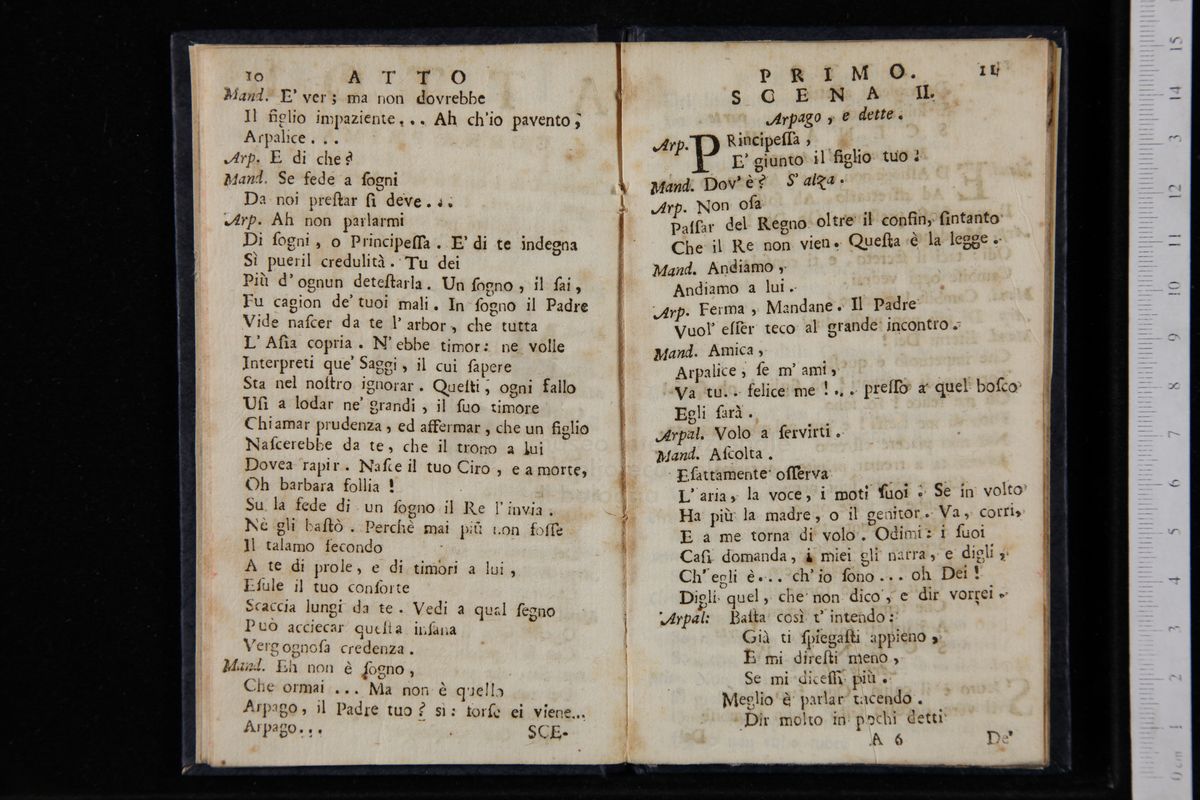 10 ATTO
Mand. E' ver; ma non dovrebbe
Il figlio impaziente... Ah ch'io pavento,
Arpalice...
Arp. E di che?
Mand. Se fede a ſogni
Da noi preſtar ſi deve...
Arp. Ah non parlarmi
Di ſogni, o Principeſſa. E' di te indegna
Sì pueril credulità. Tu dei
Più d'ognun deteſtarla. Un ſogno, il ſai,
Fu cagion de' tuoi mali. In ſogno il Padre
Vide naſcer da te l'arbor, che tutta
L'Aſia copria. N'ebbe timor: ne volle
Interpreti que' Saggi, il cui ſapere
Sta nel noſtro ignorar. Queſti, ogni fallo
Uſi a lodar ne' grandi, il ſuo timore
Chiamar prudenza, ed affermar, che un figlio
Naſcerebbe da te, che il trono a lui
Dovea rapir. Naſce il tuo Ciro, e a morte,
Oh barbara follia!
Su la fede di un ſogno il Re l'invia.
Nè gli baſtò. Perchè mai più non foſſe
Il talamo fecondo
A te di prole, e di timori a lui,
Eſule il tuo conſorte
Scaccia lungi da te. Vedi a qual ſegno
Può acciecar queſta inſana
Vergognoſa credenza.
Mand. Eh non è ſogno,
Che ormai... Ma non è quello
Arpago, il Padre tuo? sì: forſe ei viene...
Arpago...
SCE-
PRIMO. 11
SCENA II.
Arpago, e dette.
Arp. PRincipeſſa,
E' giunto il figlio tuo.
Mand. Dov'è? S'alza.
Arp. Non oſa
Paſſar del Regno oltre il confin, ſintanto
Che il Re non vien. Queſta è la legge.
Mand. Andiamo,
Andiamo a lui.
Arp. Ferma, Mandane. Il Padre
Vuol' eſſer teco al grande incontro.
Mand. Amica,
Arpalice, ſe m'ami,
Va tu.. felice me!... preſſo a quel boſco
Egli ſarà.
Arpal. Volo a ſervirti.
Mand. Aſcolta.
Eſattamente oſſerva
L'aria, la voce, i moti ſuoi. Se in volto
Ha più la madre, o il genitor. Va, corri,
E a me torna di volo. Odimi: i ſuoi
Caſi domanda, i miei gli narra, e digli,
Ch'egli è... ch'io ſono... oh Dei!
Digli quel, che non dico, e dir vorrei.
Arpal: Baſta così t'intendo:
Già ti ſpiegaſti appieno,
E mi direſti meno,
Se mi diceſſi più.
Meglio è parlar tacendo.
Dir molto in pochi detti
A 6 De'